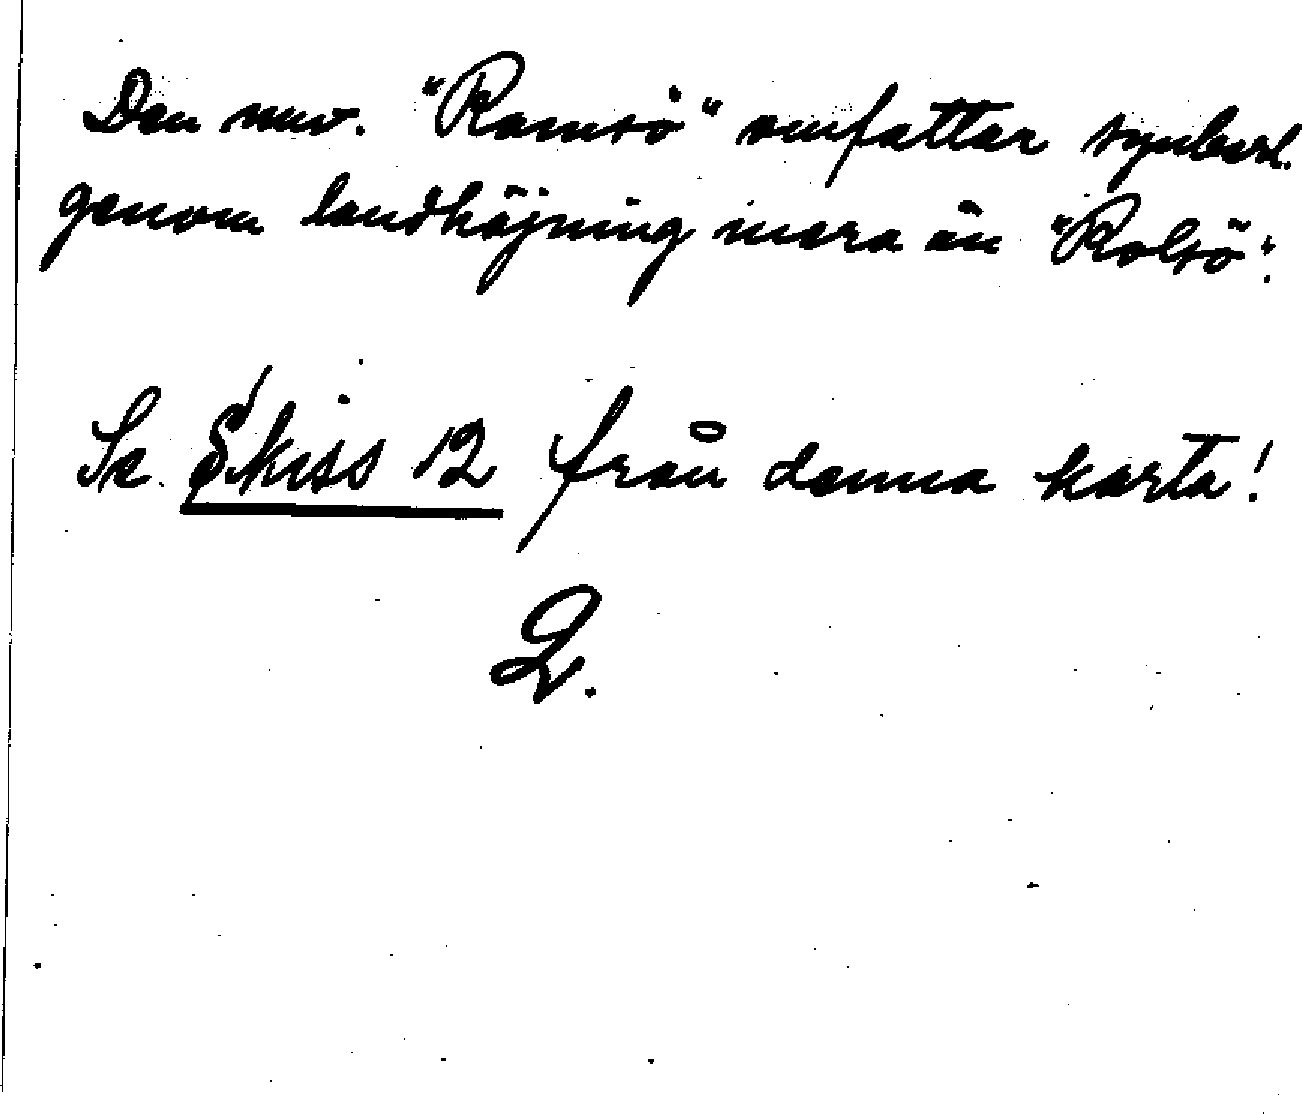 Den nuv. "Ramsö" omfattar synbarl.
genom landhöjning mera än "Rolsö":
Se Skiss 12 från denna karta!
2.